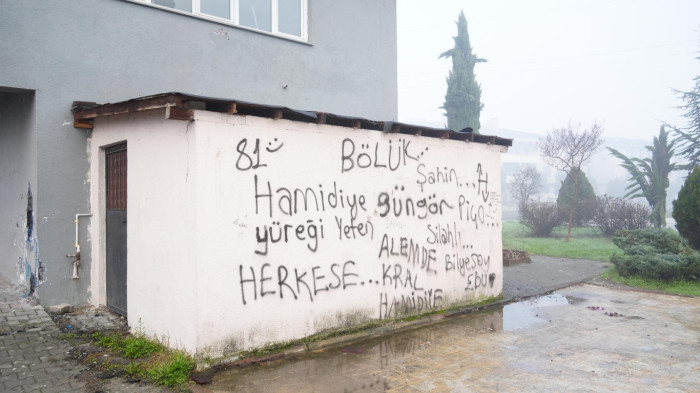 81
BÖLÜK..
Şahin...
Hamidiye güngör Piço...
yüreği Yeten Silahlı..
ALEMDE Bilgesoy
HERKESE... KRAL EBU
HAMİDİYE